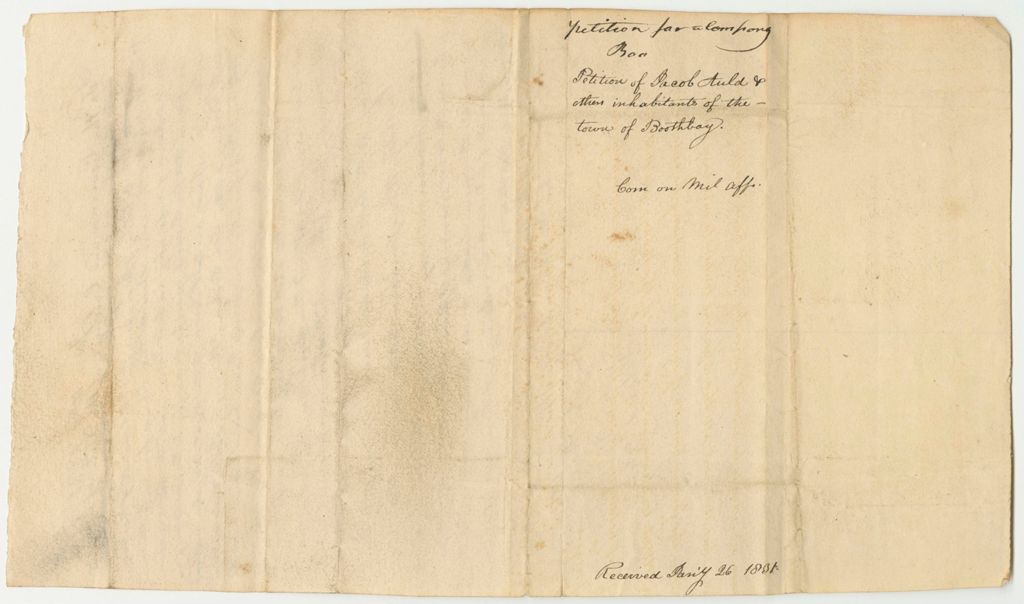 Petition for a Company
Petition of Jacob Auld &
others inhabitants of the –
town of Boothbay.
Com on Mil Affs.
Received Jan'y 26 1831